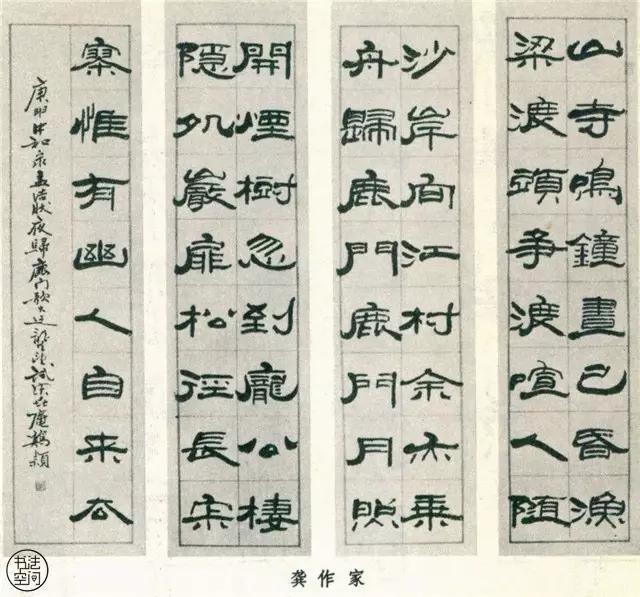 山寺鳴鐘晝已昏漁
梁渡頭爭渡喧人隨
沙岸向江村余亦乘
舟歸鹿門鹿門月照
開煙樹忽到龐公棲
隱処巖扉松徑長寂
寥惟有幽人自来去
庚申中和录孟浩然夜歸鹿门歌
龔作家
书法空间